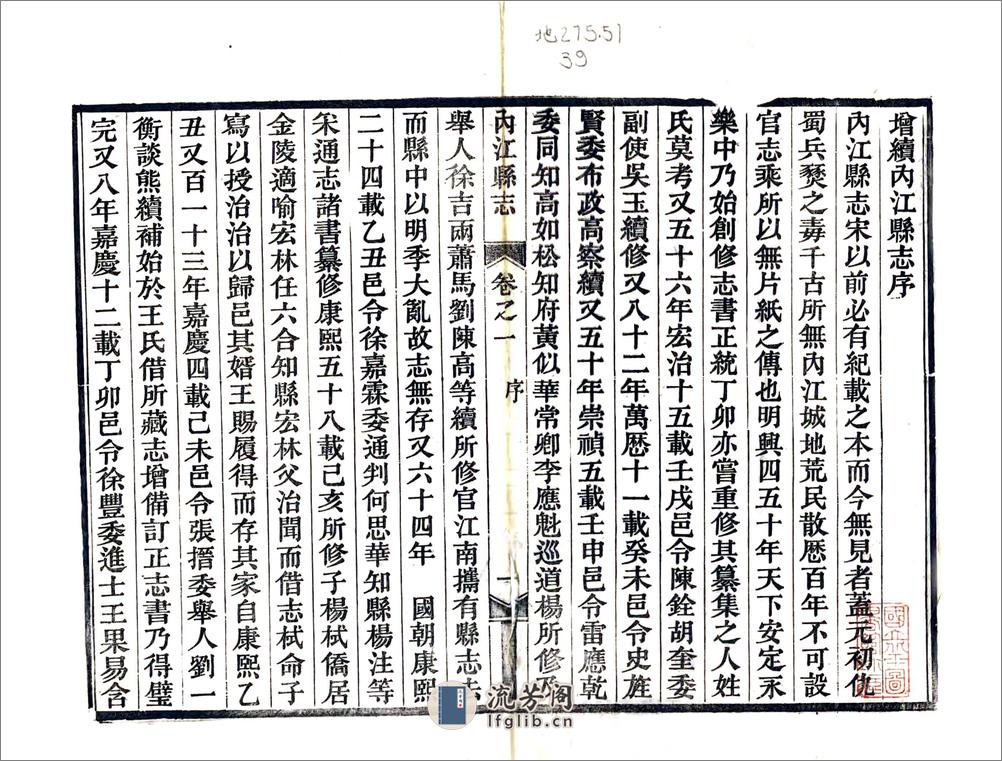 地275.51
39
增續內江縣志序
內江縣志宋以前必有紀載之本而今無見者蓋元初
蜀兵燹之毒千古所無內江城地荒民散歷百年不可設
官志乘所以無片紙之傳也明興四五十年天下安定永
樂中乃始創修志書正統丁卯亦嘗重修其纂集之人姓
氏莫考又五十六年宏治十五載壬戌邑令陳銓胡奎委
副使吳玉續修又八十二年萬曆十一載癸未邑令史旌
賢委布政高察續又五十年崇禎五載壬申邑令雷應乾
委同知高如松知府黃似華常卿李應魁巡道楊所修及
內江縣志 卷之一 序 一
舉人徐吉兩蕭馬劉陳高等續所修官江南攜有縣志去
而縣中以明季大亂故志無存又六十四年 國朝康熙
二十四載乙丑邑令徐嘉霖委通判何思華知縣楊注等
采通志諸書纂修康熙五十八載己亥所修子楊栻僑居
金陵適喻宏林任六合知縣宏林父治聞而借志栻命子
寫以授治治以歸邑其婿王賜履得而存其家自康熙乙
丑又百一十三年嘉慶四載己未邑令張搢委舉人劉一
衡談熊續補始於王氏借所藏志增備訂正志書乃得璧
完又八年嘉慶十二載丁卯邑令徐豐委進士王果易含
流芳阁
lfglib.cn